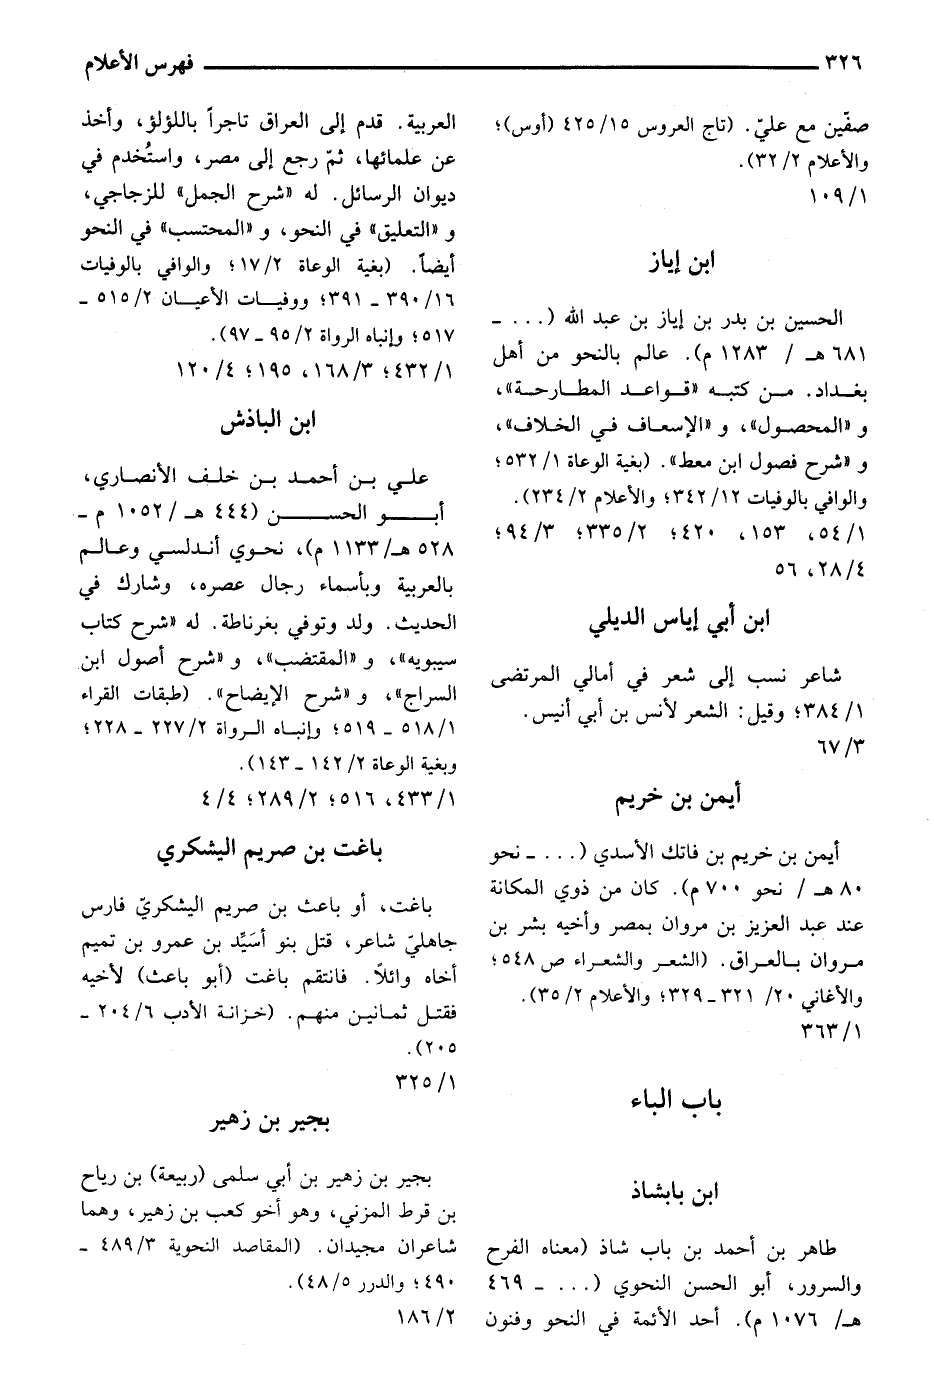 ٣٢٦ فهرس الأعلام
صفّين مع عليّ. (تاج العروس ٤٢٥/١٥ (أوس)؛
والأعلام ٣٢/٢).
١٠٩/١
ابن إياز
الحسين بن بدر بن إياز بن عبد الله (... ـ
٦٨١ هـ / ١٢٨٣ م). عالم بالنحو من أهل
بغداد. من كتبه «قواعد المطارحة»،
و «المحصول»، و «الإسعاف في الخلاف»،
و «شرح فصول ابن معط». (بغية الوعاة ٥٣٢/١؛
والوافي بالوفيات ٣٤٢/١٢؛ والأعلام ٢٣٤/٢).
٥٤/١، ١٥٣، ٤٢٠؛ ٣٣٥/٢؛ ٩٤/٣؛
٢٨/٤، ٥٦
ابن أبي إياس الديلي
شاعر نسب إلى شعر في أمالي المرتضى
٣٨٤/١؛ وقيل: الشعر لأنس بن أبي أنيس.
٦٧/٣
أيمن بن خريم
أيمن بن خريم بن فاتك الأسدي (... ـ نحو
٨٠ هـ / نحو ٧٠٠ م). كان من ذوي المكانة
عند عبد العزيز بن مروان بمصر وأخيه بشر بن
مروان بالعراق. (الشعر والشعراء ص ٥٤٨؛
والأغاني ٢٠/ ٣٢١ ـ ٣٢٩؛ والأعلام ٣٥/٢).
٣٦٣/١
باب الباء
ابن بابشاذ
طاهر بن أحمد بن باب شاذ (معناه الفرح
والسرور، أبو الحسن النحوي (... ـ ٤٦٩
هـ/ ١٠٧٦ م). أحد الأئمة في النحو وفنون
العربية. قدم إلى العراق تاجراً باللؤلؤ، وأخذ
عن علمائها، ثمّ رجع إلى مصر، واستُخدم في
ديوان الرسائل. له «شرح الجمل» للزجاجي،
و «التعليق» في النحو، و «المحتسب» في النحو
أيضاً. (بغية الوعاة ١٧/٢؛ والوافي بالوفيات
٣٩٠/١٦ ـ ٣٩١؛ ووفيات الأعيان ٥١٥/٢ ـ
٥١٧؛ وإنباه الرواة ٩٥/٢ ـ ٩٧).
٤٣٢/١؛ ١٦٨/٣، ١٩٥؛ ١٢٠/٤
ابن الباذش
علي بن أحمد بن خلف الأنصاري،
أبو الحسن (٤٤٤ هـ /١٠٥٢ م ـ
٥٢٨ هـ/١١٣٣ م)، نحوي أندلسي وعالم
بالعربية وبأسماء رجال عصره، وشارك في
الحديث. ولد وتوفي بغرناطة. له «شرح كتاب
سيبويه»، و «المقتضب»، و «شرح أصول ابن
السراج»، و «شرح الإيضاح». (طبقات القراء
٥١٨/١ ـ ٥١٩؛ وإنباه الرواة ٢٢٧/٢ ـ ٢٢٨؛
وبغية الوعاة ١٤٢/٢ ـ ١٤٣).
٤٣٣/١، ٥١٦؛ ٢٨٩/٢؛ ٤/٤
باغت بن صريم اليشكري
باغت، أو باعث بن صريم اليشكريّ فارس
جاهليّ شاعر، قتل بنو أسَيِّد بن عمرو بن تميم
أخاه وائلاً. فانتقم باغت (أبو باعث) لأخيه
فقتل ثمانين منهم. (خزانة الأدب ٢٠٤/٦ ـ
٢٠٥).
٣٢٥/١
بجير بن زهير
بجير بن زهير بن أبي سلمى (ربيعة) بن رياح
بن قرط المزني، وهو أخو كعب بن زهير، وهما
شاعران مجيدان. (المقاصد النحوية ٤٨٩/٣ ـ
٤٩٠؛ والدرر ٤٨/٥).
١٨٦/٢